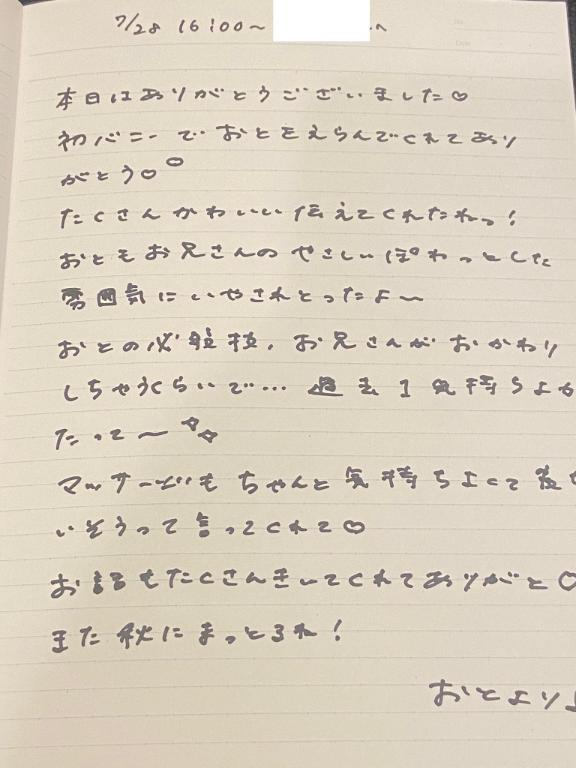 7/28 16:00〜 へ
本日はありがとうございました♡
初バニーでおとをえらんでくれてあり
がとう♡♡
たくさんかわいい伝えてくれたねっ!
おともお兄さんのやさしいぽわっとした
雰囲気にいやされとったよ〜
おとの必殺技、お兄さんがおかわり
しちゃうくらいで… 過去1気持ちよか
たって〜
マッサージもちゃんと気持ちよくて
いそうって言ってくれて♡
お話もたくさんきいてくれてありがと♡
また秋にまっとるね!
おとより